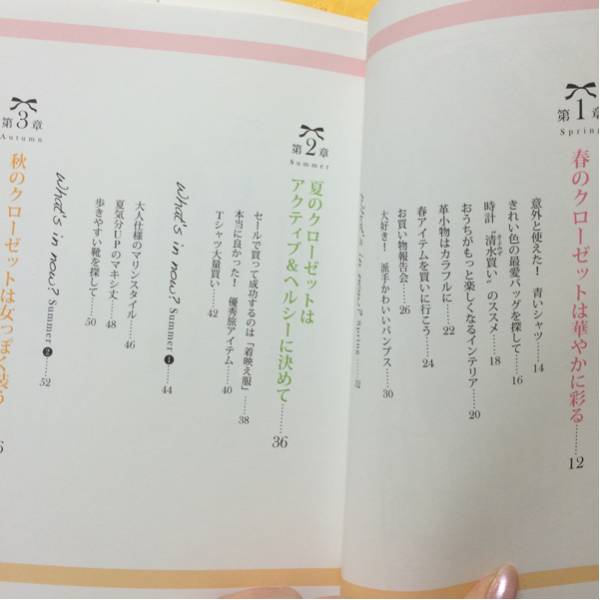 第1章
Spring
春のクローゼットは華やかに彩る……12
意外と使えた！ 青いシャツ……14
きれい色の最愛バッグを探して……16
時計“清水買い”のススメ……18
おうちがもっと楽しくなるインテリア……20
革小物はカラフルに……22
春アイテムを買いに行こう……24
お買い物報告会……26
大好き！ 派手かわいいパンプス……30
What's in now? Spring……32
第2章
Summer
夏のクローゼットは
アクティブ&ヘルシーに決めて……36
セールで買って成功するのは「着映え服」……38
本当に良かった！ 優秀旅アイテム……40
Tシャツ大量買い……42
What's in now? Summer 1……44
大人仕様のマリンスタイル……46
夏気分UPのマキシ丈……48
歩きやすい靴を探して……50
What's in now? Summer 2……52
第3章
Autumn
秋のクローゼットは女っぽく装う